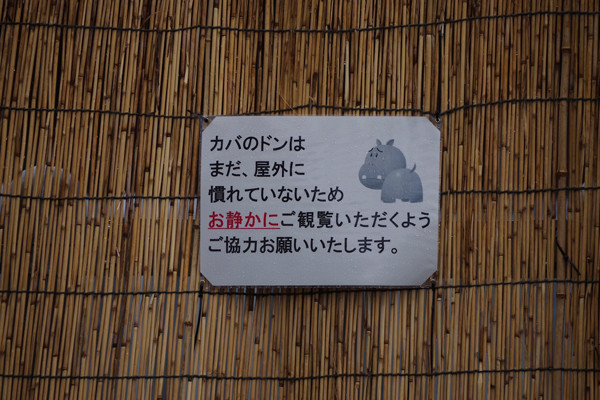 カバのドンは
まだ、屋外に
慣れていないため
お静かにご観覧いただくよう
ご協力お願いいたします。